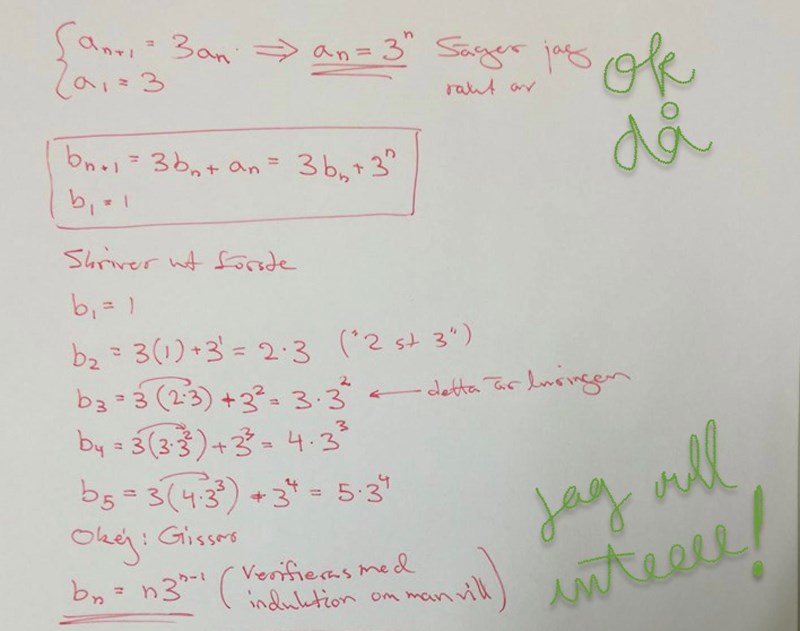 a_{n+1} = 3a_n. ⟹ a_n = 3^n Säger jag
a_1 = 3 rakt av
Ok
då
b_{n+1} = 3b_n + a_n = 3b_n + 3^n
b_1 = 1
Skriver ut första
b_1 = 1
b_2 = 3(1) + 3^1 = 2·3 ("2 st 3")
b_3 = 3(2·3) + 3^2 = 3·3^2 ← detta är lösningen
b_4 = 3(3·3^2) + 3^3 = 4·3^3
b_5 = 3(4·3^3) + 3^4 = 5·3^4
Okej: Gissar
b_n = n3^{n-1} (Verifieras med
induktion om man vill)
jag vill
inteeee!